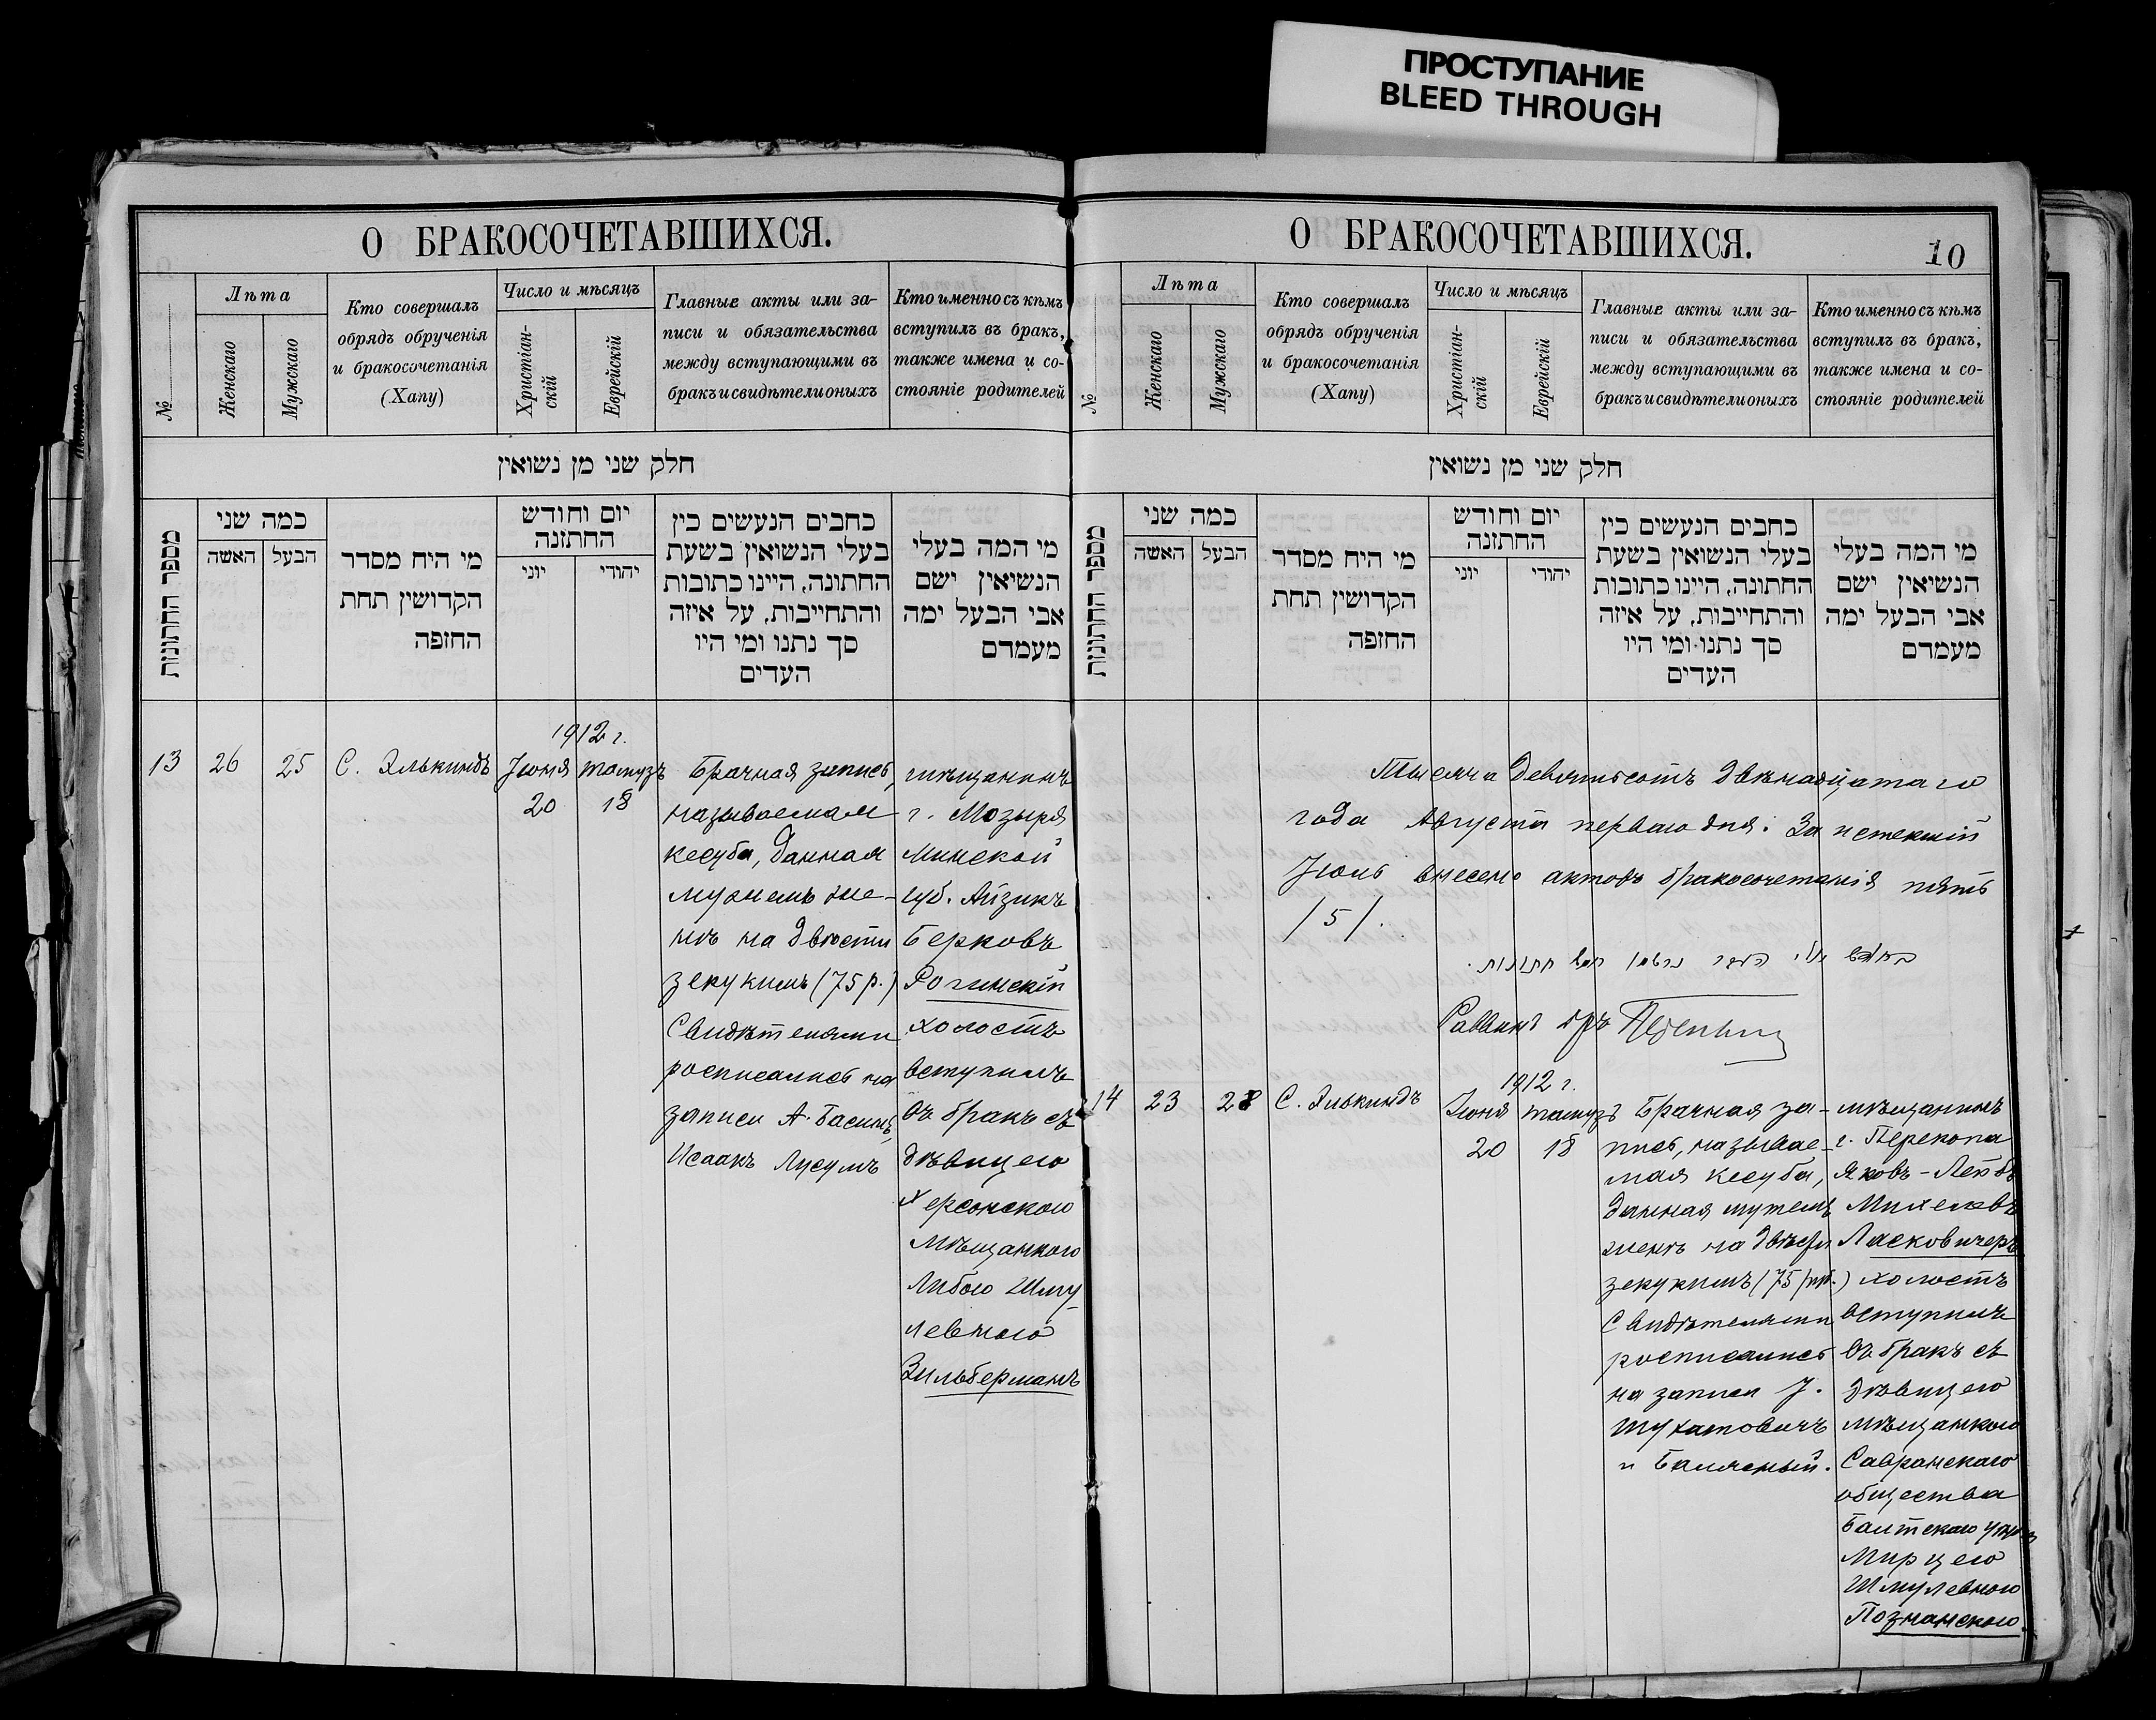 ПРОСТУПАНИЕ
BLEED THROUGH
О БРАКОСОЧЕТАВШИХСЯ.
№
Лѣта
Женскаго
Мужскаго
Кто совершалъ
обрядъ обрученія
и бракосочетанія
(Хапу)
Число и мѣсяцъ
Христіан-
скій
Еврейскій
Главные акты или за-
писи и обязательства
между вступающими въ
бракъ и свидѣтели оныхъ
Кто именно съ кѣмъ
вступилъ въ бракъ,
также имена и со-
стояніе родителей
חלק שני מן נשואין
מספר החתונות
כמה שני
האשה
הבעל
מי היח מסדר
הקדושין תחת
החופה
יום וחודש
החתונה
יוני
יהודי
כחבים הנעשים כין
בעלי הנשואין בשעת
החתונה, היינו כתובות
והתחייבות, על איזה
סך נתנו ומי היו
העדים
מי המה בעלי
הנשיאין ישם
אבי הבעל ימה
מעמדם
13
26
25
С. Элькиндъ
1912 г.
Іюня
20
тамузъ
18
Брачная запись,
называемая
кесуба, данная
мужемъ же-
нѣ на двѣсти
зекукимъ (75 р.)
Свидѣтелями
росписались на
записи А. Басинъ,
Исаакъ Лусумъ
мѣщанинъ
г. Мозыря
Минской
губ. Айзикъ
Берковъ
Рогинскій
холостъ
вступилъ
въ бракъ съ
дѣвицею
Херсонскою
мѣщанкою
Либою Шму-
левною
Зильберманъ
О БРАКОСОЧЕТАВШИХСЯ.
10
№
Лѣта
Женскаго
Мужскаго
Кто совершалъ
обрядъ обрученія
и бракосочетанія
(Хапу)
Число и мѣсяцъ
Христіан-
скій
Еврейскій
Главные акты или за-
писи и обязательства
между вступающими въ
бракъ и свидѣтели оныхъ
Кто именно съ кѣмъ
вступилъ въ бракъ,
также имена и со-
стояніе родителей
חלק שני מן נשואין
מספר החתונות
כמה שני
האשה
הבעל
מי היח מסדר
הקדושין תחת
החופה
יום וחודש
החתונה
יוני
יהודי
כחבים הנעשים כין
בעלי הנשואין בשעת
החתונה, היינו כתובות
והתחייבות, על איזה
סך נתנו ומי היו
העדים
מי המה בעלי
הנשיאין ישם
אבי הבעל ימה
מעמדם
Тысяча девятьсотъ двѣнадцатаго
года Августа перваго дня. За истекшій
Іюль внесено актовъ бракосочетанія пять
/5/.
חתונות.
Раввинъ
14
23
28
С. Элькиндъ
1912 г.
Іюня
20
тамузъ
18
Брачная за-
пись, называе-
мая кесуба,
данная мужемъ
женѣ на двѣсти
зекукимъ (75 руб.)
Свидѣтелями
росписались
на записи І.
Шухатовичъ
и Балясный.
мѣщанинъ
г. Перекопа
Яковъ-Лейбъ
Михелевъ
Ласковичеръ
холостъ
вступилъ
въ бракъ съ
дѣвицею
мѣщанкою
Савранскаго
общества
Балтскаго уѣзда
Мирцею
Шмулевною
Познанскою.